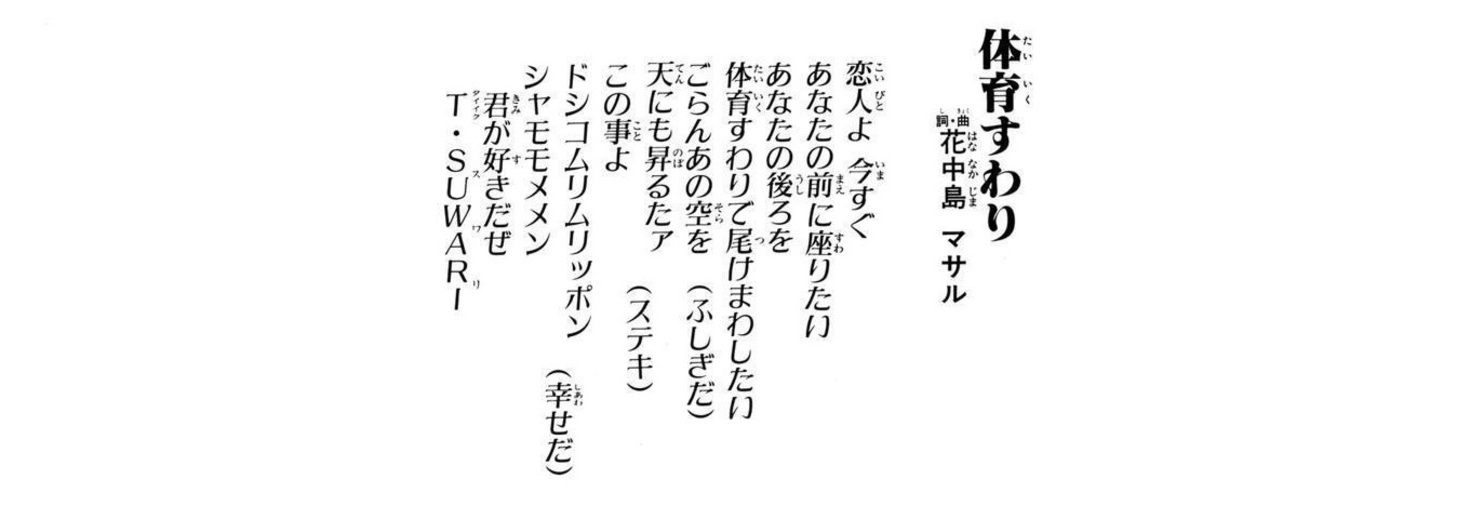 体育すわり
詞・曲 花中島 マサル
恋人よ 今すぐ
あなたの前に座りたい
あなたの後ろを
体育すわりで尾けまわしたい
ごらんあの空を (ふしぎだ)
天にも昇るたア
(ステキ)
この事よ
ドシコムリムリッポン
(幸せだ)
シャモモメメン
君が好きだぜ
T・SUWARI